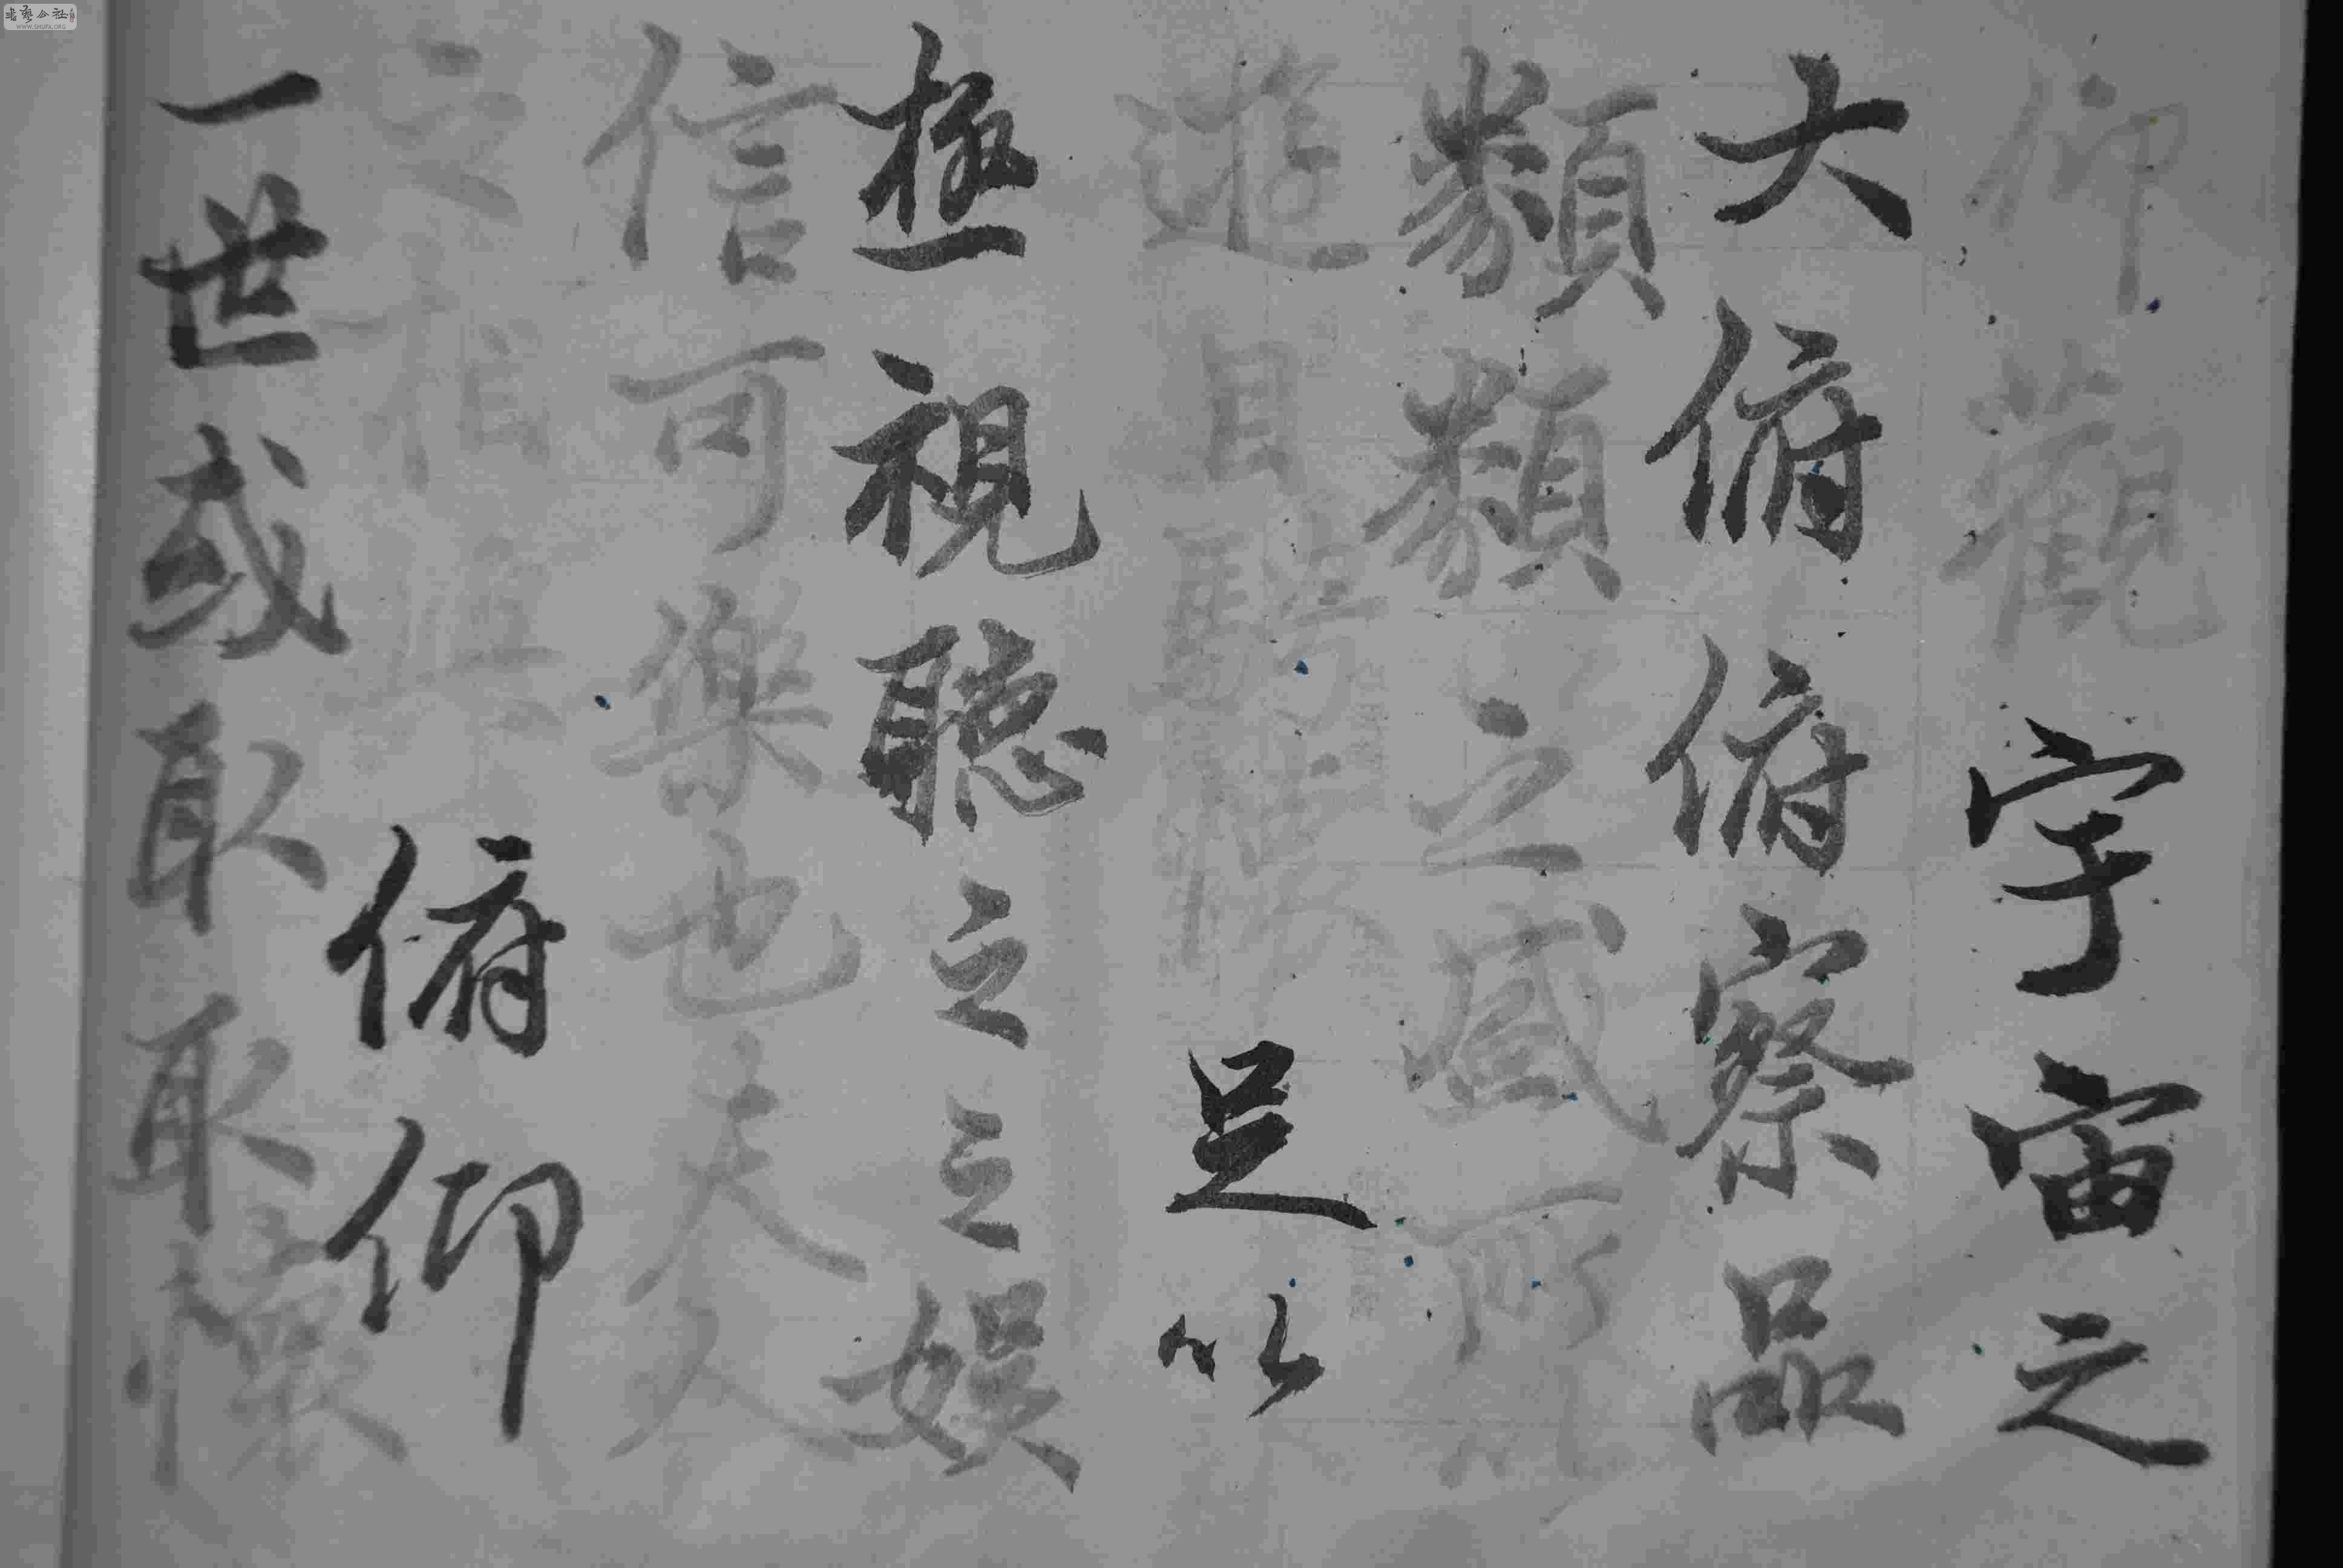 仰觀宇宙之
大俯俯察品
類類之盛所以
遊目騁懷足以
極視聽之之娛
信可樂也夫人
之相與俯仰
一世或取取諸懷
WWW.SHUFA.ORG